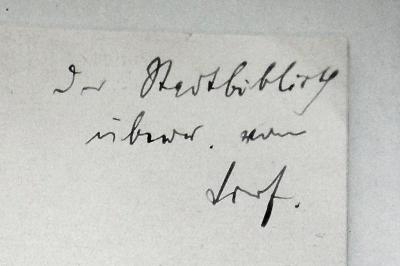 Der Stadtbiblioth
überr. vom
Verf.